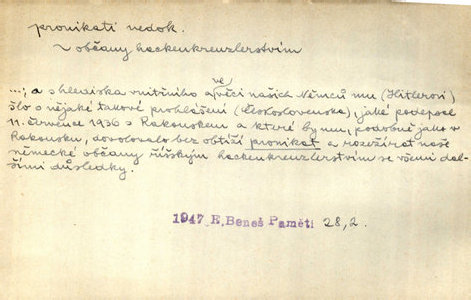 pronikati nedok.
~ občany hackenkreuzlerstvím
...; a s hlediska vnitřního a ve věci našich Němců mu (Hitlerovi)
šlo o nějaké takové prohlášení (Československa) jaké podepsal
11. července 1936 s Rakouskem a které by mu, podobně jako v
Rakousku, dovolovalo bez obtíží pronikat a rozežírat naše
německé občany říšským hackenkreuzlerstvím se všemi dal-
šími důsledky.
1947 E. Beneš Paměti 28,2.